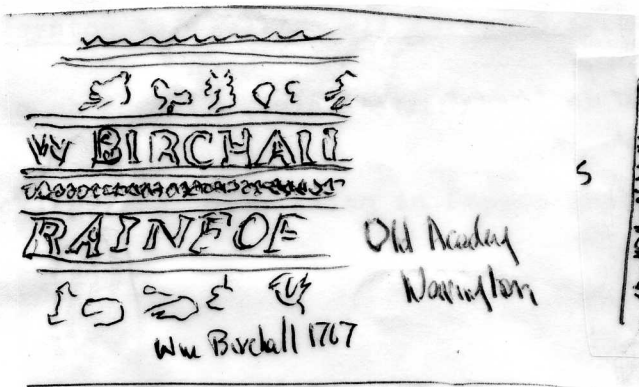 W BIRCHALL
RAINFOF
Old Academy
Warrington
Wm Birchall 1767
S